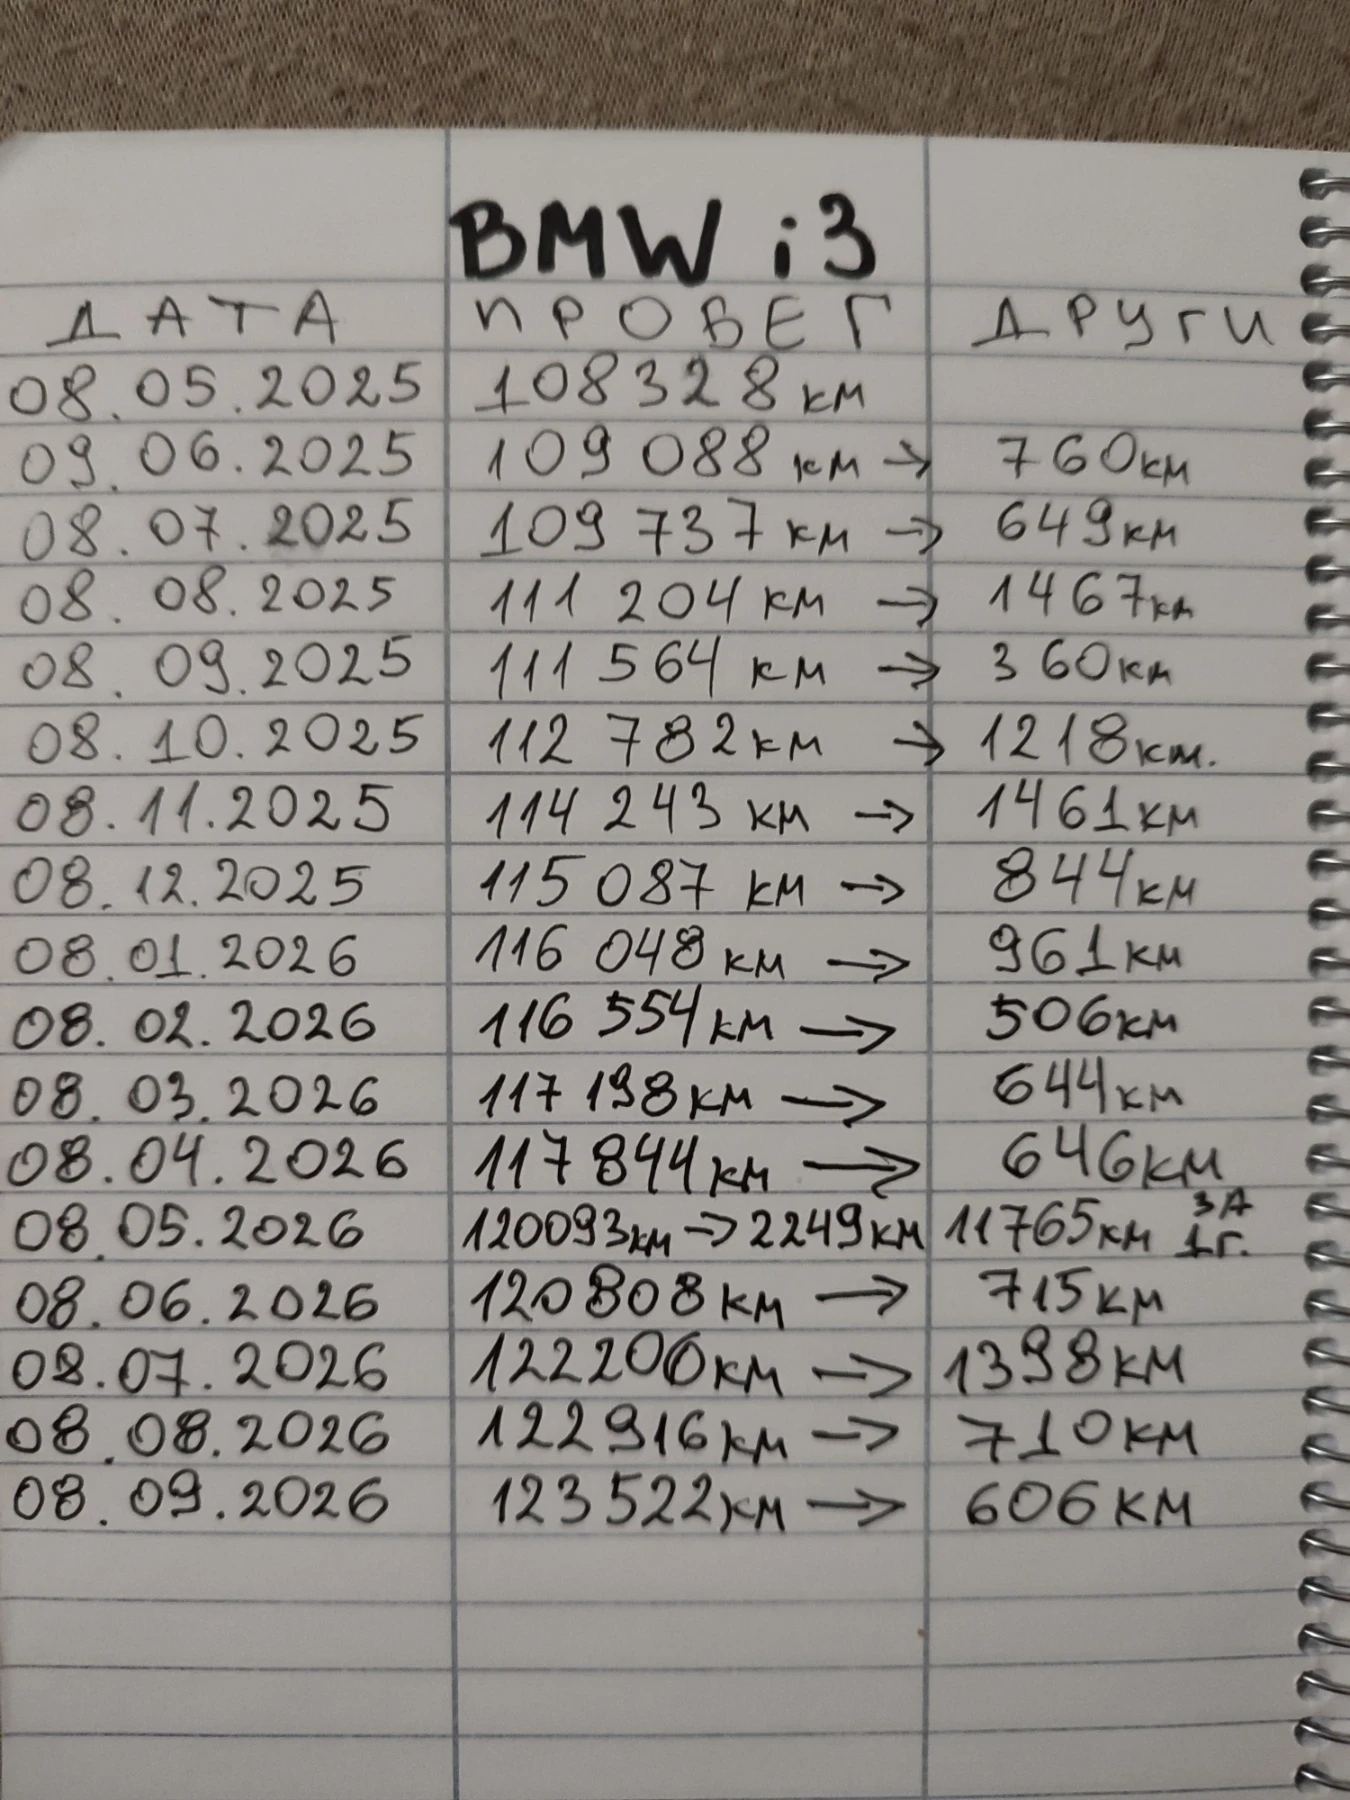 BMW i3
ДАТА ПРОБЕГ ДРУГИ
08.05.2025 108328 км
09.06.2025 109 088 км → 760км
08.07.2025 109 737 км → 649км
08.08.2025 111 204 км → 1467км
08.09.2025 111 564 км → 360км
08.10.2025 112 782 км → 1218км.
08.11.2025 114 243 км → 1461км
08.12.2025 115 087 км → 844км
08.01.2026 116 048 км → 961км
08.02.2026 116 554км → 506км
08.03.2026 117 198км → 644км
08.04.2026 117 844км → 646км
08.05.2026 120093км → 2249км 11765км ЗА 1г.
08.06.2026 120808км → 715км
08.07.2026 122206км → 1398км
08.08.2026 122916км → 710км
08.09.2026 123522км → 606км